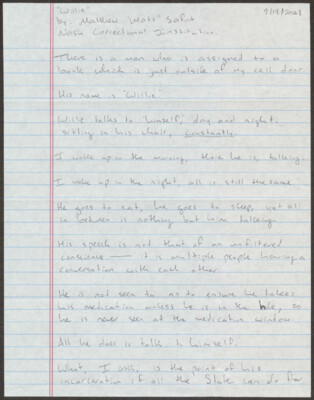 "Willie"
by: Matthew "Matt"
Nash Correctional Institution
There is a man who is assigned to a
bunk which is just outside of my cell door.
His name is "Willie"
Willie talks to himself, day and night,
sitting in his chair, constantly.
I wake up in the morning, there he is, talking.
I wake up in the night, all is still the same
He goes to eat, he goes to sleep, yet all
in between is nothing but him talking.
His speech is not that of an unfiltered
conscience — it is multiple people having a
conversation with each other
He is not seen to as to ensure he takes
his medication unless he is in the hole, so
he is never seen at the medication window.
All he does is talk to himself.
What, I ask, is the point of his
incarceration if all the State can do for